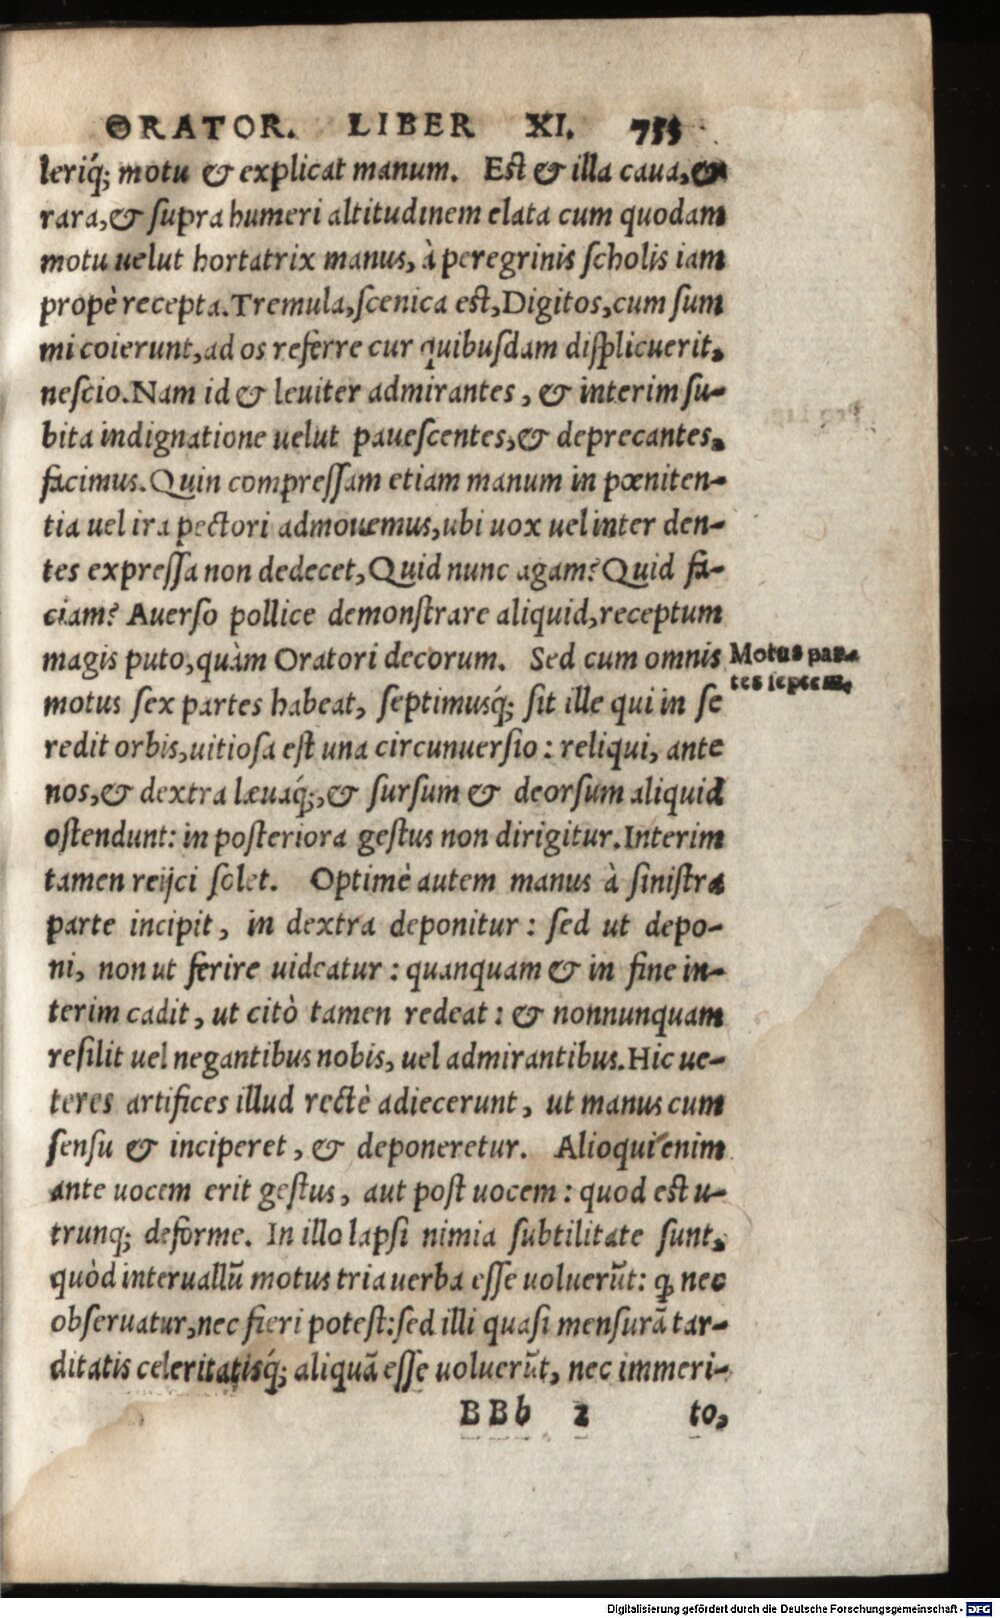 ORATOR. LIBER XI. 755
leriq́; motu & explicat manum. Est & illa caua, &
rara, & supra humeri altitudinem elata cum quodam
motu uelut hortatrix manus, à peregrinis scholis iam
propè recepta. Tremula, scenica est, Digitos, cum sum
mi coierunt, ad os referre cur quibusdam displicuerit,
nescio. Nam id & leuiter admirantes, & interim su-
bita indignatione uelut pauescentes, & deprecantes,
facimus. Quin compressam etiam manum in pœniten-
tia uel ira pectori admouemus, ubi uox uel inter den-
tes expressa non dedecet, Quid nunc agam? Quid fa-
ciam? Auerso pollice demonstrare aliquid, receptum
magis puto, quàm Oratori decorum. Sed cum omnis
Motus par-
tes septem.
motus sex partes habeat, septimusq́; sit ille qui in se
redit orbis, uitiosa est una circunuersio: reliqui, ante
nos, & dextra læuaq́;, & sursum & deorsum aliquid
ostendunt: in posteriora gestus non dirigitur. Interim
tamen reijci solet. Optimè autem manus à sinistra
parte incipit, in dextra deponitur: sed ut depo-
ni, non ut ferire uideatur: quanquam & in fine in-
terim cadit, ut citò tamen redeat: & nonnunquam
resilit uel negantibus nobis, uel admirantibus. Hic ue-
teres artifices illud rectè adiecerunt, ut manus cum
sensu & inciperet, & deponeretur. Alioqui enim
ante uocem erit gestus, aut post uocem: quod est u-
trunq; deforme. In illo lapsi nimia subtilitate sunt,
quòd interuallũ motus tria uerba esse uoluerũt: ꝙ nec
obseruatur, nec fieri potest: sed illi quasi mensurã tar-
ditatis celeritatisq́; aliquã esse uoluerũt, nec immeri-
BBb 2 to,
Digitalisierung gefördert durch die Deutsche Forschungsgemeinschaft - DFG